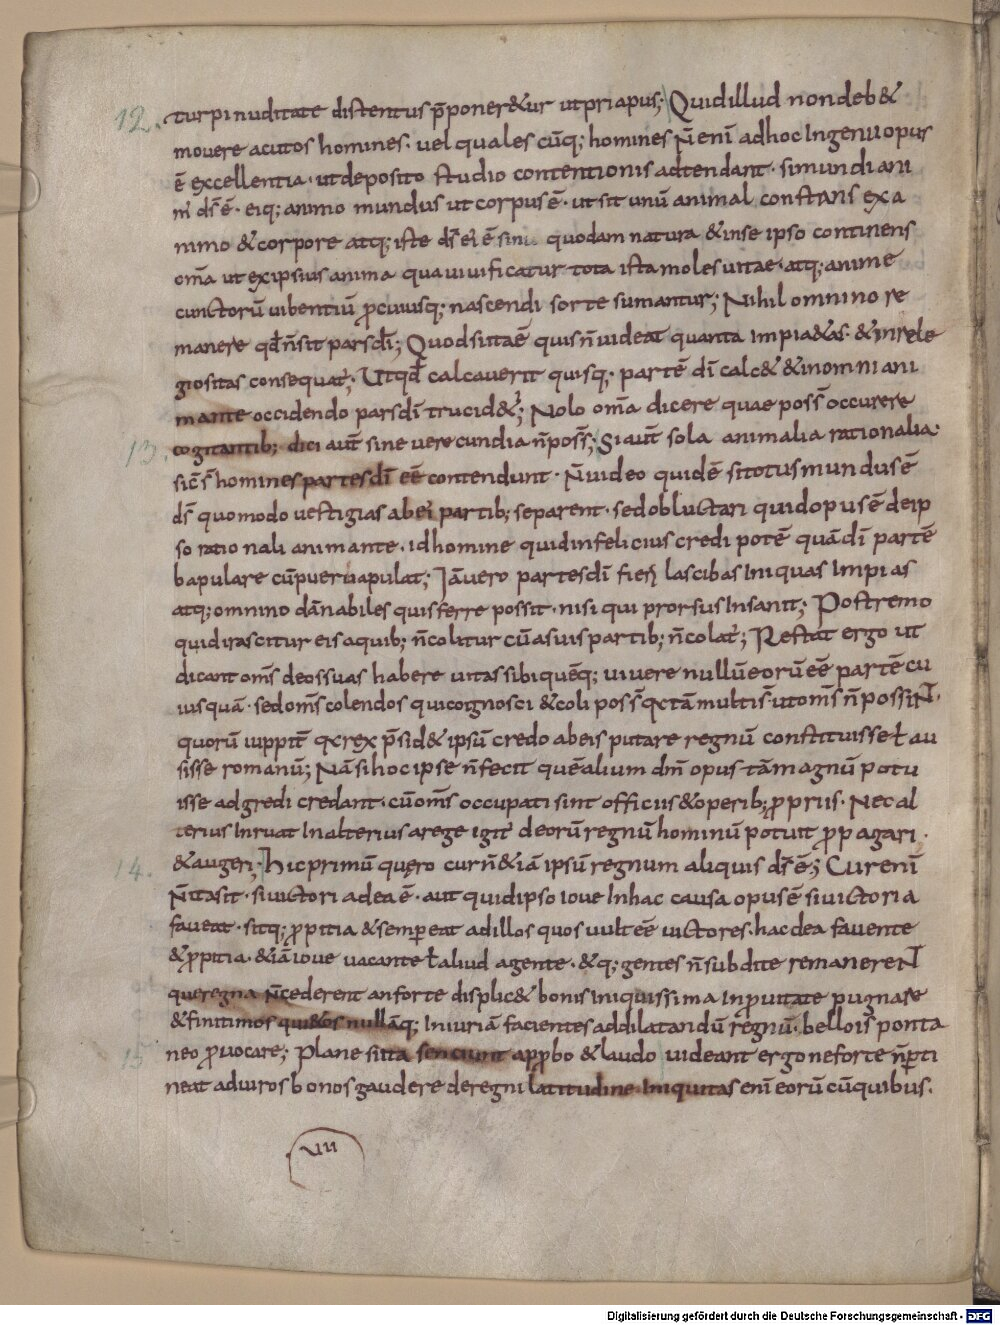 12. turpi nuditate distentus p̄poner&ur utpriapus; Quidillud nondeb&
mouere acutos homines. uel quales cūq; homines N̄ enī adhoc Ingenii opus
ē excellentia. utdeposito studio contentionis adtendant. simundi ani
m' ds̄ ē. eiq; animo mundus ut corpus ē. ut sit unū animal constans exa
nimo & corpore atq; iste ds̄ ei ē sinu quodam natura & inse ipso continens
om̄a ut exipsius anima qua uiuificatur tota ista moles uitae. atq; anime
cunctorū uibentiū ꝓcuiusq; nascendi sorte sumantur; Nihil omnino re
manere qd̄ n̄ sit pars dī; Quodsi ita ē quis n̄ uideat quanta impia&as. & inrele
giositas consequat'; Ut qd̄ calcauerit quisq; partē dī calc& & inomni ani
mante occidendo pars dī trucid&'; Nolo om̄a dicere quae poss̄ occurere
13. cogitantib; dici aut̄ sine uerecundia n̄ poss̄; Si aut̄ sola animalia rationalia.
sic s̄ homines partes dī eē contendunt. N̄ uideo quidē si totus mundus ē
ds̄ quomodo uestigias abei partib; separent. sed obluctari quid opus ē deip
so rationali animante. id homine quid infelicius credi potē quā dī partē
bapulare cū puer uapulat; Iā uero partes dī fieri lascibas iniquas impias
atq; omnino dānabiles quis ferre possit. nisi qui prorsus insanit; Postremo
quid irascitur eis aquib; n̄ colitur cū asuis partib; n̄ colat'; Restat ergo ut
dicant om̄s deos suas habere uitas sibi quēq; uiuere nullū eorū eē partē cu
iusquā. sed om̄s colendos qui cognosci & coli poss̄ qctā multi s̄ ut om̄s n̄ possiNt.
quorū iuppit̄ qc rex p̄sid& ipsū credo abeis putare regnū constituisse ł au
sisse romanū; Nā si hoc ipse n̄ fecit quē alium dm̄ opus tā magnū potu
isse adgredi credant. cū om̄s occupati sint officiis & operib; ꝓpriis. Nec al
terius inruat in alterius arege igit' deorū regnū hominū potuit ꝓpagari.
14. & augeri; hic primū quero cur n̄ & iā ipsū regnum aliquis ds̄ ē; Cur enī
N̄ ita sit. si uictoria dea ē. aut quid ipso ioue In hac causa opus ē si uictoria
faueat. sitq; ꝓpitia & semp̄ eat ad illos quos uult eē uictores. hac dea fauente
& ꝓpitia. & iā ioue uacante ł aliud agente. &q; gentes n̄ subdite remanereNt
que regna n̄ cederent an forte displic& bonis iniquissima inꝓuitate pugnare
& finitimos qui&os nullāq; Iniuriā facientes addilatandū regnū. bello is ponta
15. neo ꝓuocare; Plane si ita senciunt apꝓbo & laudo uideant ergo ne forte n̄ ꝑti
neat aduiros bonos gaudere de regni latitudine. iniquitas enī eorū cū quibus.
VII
Digitalisierung gefördert durch die Deutsche Forschungsgemeinschaft - DFG